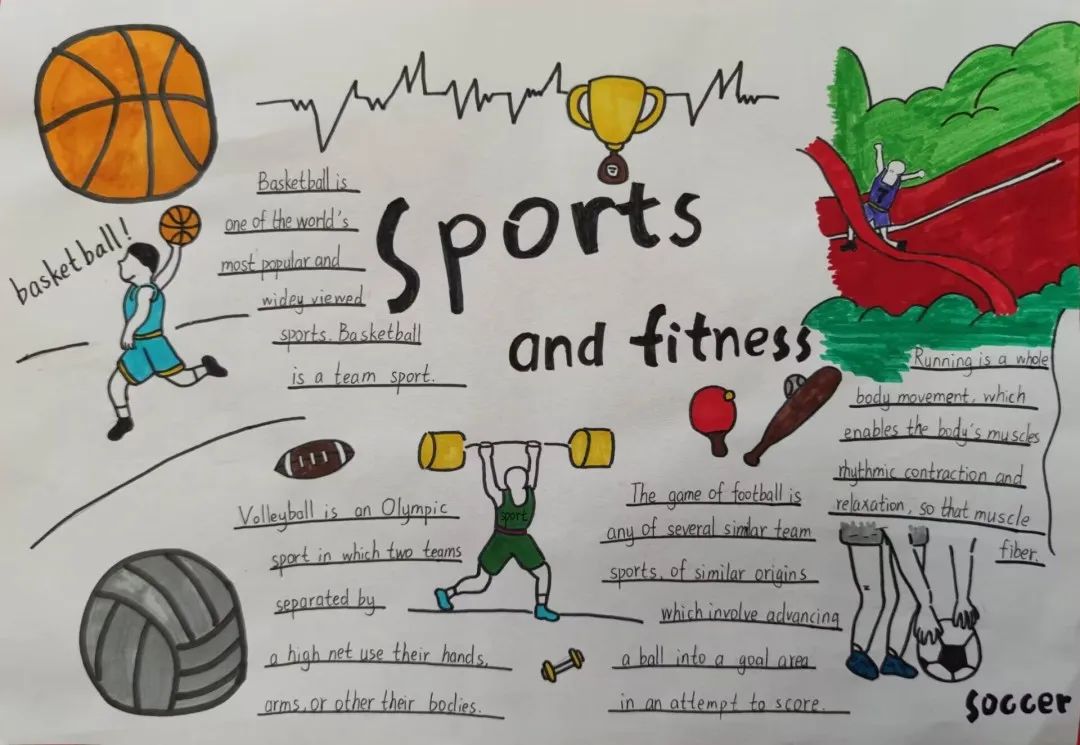 Sports
and fitness
basketball!
Basketball is
one of the world's
most popular and
widey viewed
sports. Basketball
is a team sport.
7
Running is a whole
body movement, which
enables the body's muscles
rhythmic contraction and
relaxation, so that muscle
fiber.
sport
Volleyball is an Olympic
sport in which two teams
separated by
a high net use their hands,
arms, or other their bodies.
The game of football is
any of several similar team
sports, of similar origins
which involve advancing
a ball into a goal area
in an attempt to score.
soccer